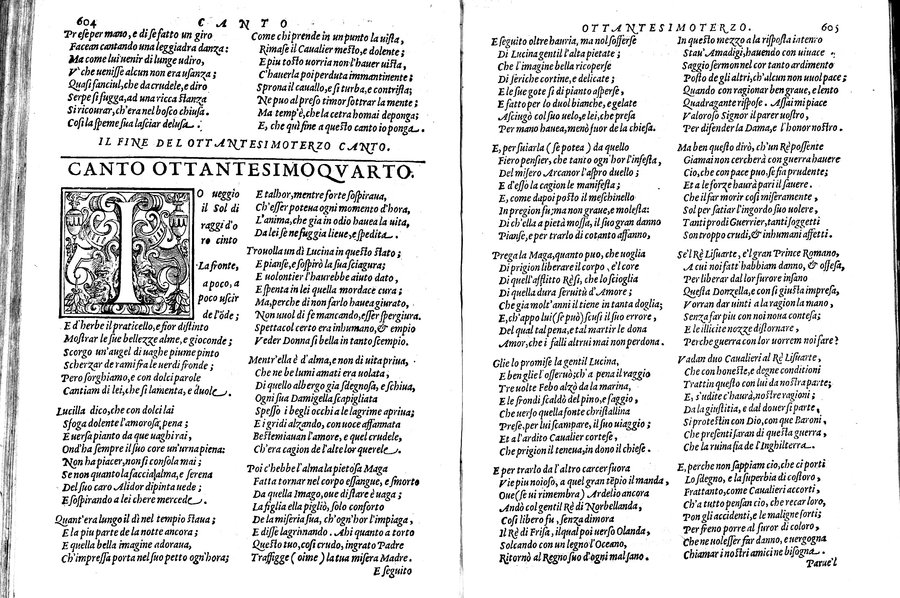 604
CANTO
Prese per mano, e di se fatto un giro
Facean cantando una leggiadra danza:
Ma come lui venir di lunge udiro,
V' che uenisse alcun non era usanza;
Quasi fanciul, che da crudele, e diro
Serpe si fugga, ad una ricca stanza
Si ricourar, ch'era nel bosco chiusa.
Cosi la speme sua lasciar delusa.
Come chi prende in un punto la uista,
Rimase il Caualier mesto, e dolente;
E piu tosto uorria non l'hauer uista,
C'hauerla poi perduta immantinente;
Sprona il cauallo, e si turba, e contrista;
Ne puo al preso timor sottrar la mente;
Ma temp'è, che la cetra homai deponga;
E, che qui fine a questo canto io ponga.
IL FINE DEL OTTANTESIMOTERZO CANTO.
CANTO OTTANTESIMOQVARTO.
IO ueggio
il Sol di
raggi d'o
ro cinto
La fronte,
a poco, a
poco uscir
de l'ōde;
E d'herbe il praticello, e fior distinto
Mostrar le sue bellezze alme, e gioconde;
Scorgo un'augel di uaghe piume pinto
Scherzar de rami fra le uerdi fronde;
Pero sorghiamo, e con dolci parole
Cantiam di lei, che si lamenta, e duole.
Lucilla dico, che con dolci lai
Sfoga dolente l'amorosa pena;
E uersa pianto da que uaghi rai,
Ond'ha sempre il suo core un'urna piena:
Non ha piacer, non si consola mai;
Se non quanto la faccia alma, e serena
Del suo caro Alidor dipinta uede;
E sospirando a lei chere mercede.
Quant'era lungo il dì nel tempio staua;
E la piu parte de la notte ancora;
E quella bella imagine adoraua,
Ch'impressa porta nel suo petto ogn'hora;
E talhor, mentre forte sospiraua,
Ch'esser poteua ogni momento d'hora,
L'anima, che gia in odio hauea la uita,
Da lei se ne fuggia lieue, e spedita.
Trouolla un dì Lucina in questo stato;
E pianse, e sospirò la sua sciagura;
E uolontier l'haurebbe aiuto dato,
E spenta in lei quella mordace cura;
Ma, perche di non farlo hauea giurato,
Non uuol di se mancando, esser spergiura.
Spettacol certo era inhumano, & empio
Veder Donna sì bella in tanto scempio.
Mentr'ella è d'alma, e non di uita priua,
Che ne be lumi amati era uolata,
Di quello albergo gia sdegnosa, e schiua,
Ogni sua Damigella scapigliata
Spesso i begli occhi a le lagrime apriua;
E i gridi alzando, con uoce affannata
Bestemiauan l'amore, e quel crudele,
Ch'era cagion de l'alte lor querele.
Poi c'hebbe l'alma la pietosa Maga
Fatta tornar nel corpo essangue, e smorto
Da quella Imago, oue di stare è uaga;
La figlia ella pigliò, solo conforto
De la miseria sua, ch'ogn'hor l'impiaga,
E disse lagrimando. Ahi quanto a torto
Questo tuo, così crudo, ingrato Padre
Traffigge (oime) la tua misera Madre.
E seguito
OTTANTESIMOTERZO.
605
E seguito oltre hauria, ma nol sofferse
Di Lucina gentil l'alta pietate;
Che l'imagine bella ricoperse
Di seriche cortine, e delicate;
E le sue gote sì di pianto asperse,
E fatto per lo duol bianche, e gelate
Asciugò col suo uelo, e lei, che presa
Per mano hauea, menò fuor de la chiesa.
E, persuiarla (se potea) da quello
Fiero pensier, che tanto ogn'hor l'infesta,
Del misero Arcanor l'aspro duello;
E d'esso la cagion le manifesta;
E, come dapoi posto il meschinello
In pregion fu; ma non graue, e molesta:
Di ch'ella a pietà mossa, il suo gran danno
Pianse, e per trarlo di cotanto affanno,
Prega la Maga, quanto puo, che uoglia
Di prigion liberare il corpo, e'l core
Di quell'afflitto Rè sì, che lo scioglia
Di quella dura seruitù d'Amore;
Che gia molt'anni il tiene in tanta doglia;
E, ch'appo lui (se può) scusi il suo errore,
Del qual tal pena, e tal martir le dona
Amor, che i falli altrui mai non perdona.
Glie lo promise la gentil Lucina,
E ben glie l'osseruò; ch'a pena il raggio
Tre uolte Febo alzò da la marina,
E le frondi scaldò del pino, e faggio,
Che uerso quella fonte christallina
Prese, per lui scampare, il suo uiaggio;
Et a l'ardito Caualier cortese,
Che prigion il teneua, in dono il chiese.
E per trarlo da l'altro carcer fuora
Vie piu noioso, a quel gran tēpio il manda,
Oue (se ui rimembra) Ardelio ancora
Andò col gentil Rè di Norbellanda,
Cosi libero fu, senza dimora
Il Rè di Frisa, il qual poi uerso Olanda,
Solcando con un legno l'Oceano,
Ritornò al Regno suo d'ogni mal sano.
In questo mezzo a la risposta intento
Stau' Amadigi, hauendo con uiuace
Saggio sermon nel cor tanto ardimento
Posto de gli altri, ch'alcun non uuol pace;
Quando con ragionar ben graue, e lento
Quadragante rispose. Assai mi piace
Valoroso Signor il parer uostro,
Per difender la Dama, e l'honor nostro.
Ma ben questo dirò, ch'un Rè possente
Giamai non cercherà con guerra hauere
Cio, che con pace può, se fia prudente;
Et a le forze haurà pari il sauere.
Che il far morir cosi miseramente,
Sol per satiar l'ingordo suo uolere,
Tanti prodi Guerrier, tanti soggetti
Son troppo crudi, & inhumani affetti.
Se'l Rè Lisuarte, e'l gran Prince Romano,
A cui noi fatt'habbiam danno, & offesa,
Per liberar dal lor furore insano
Questa Donzella, e con sì giusta impresa,
Vorran dar uinti a la ragion la mano,
Senza far piu con noi noua contesa;
E le illicite nozze distornare,
Perche guerra con lor uorrem noi fare?
Vadan duo Caualieri al Rè Lisuarte,
Che con honeste, e degne conditioni
Trattin questo con lui da nostra parte;
E, s'udite c'haurà, nostre ragioni;
Da la giustitia, e dal douer si parte,
Si protestin con Dio, con que Baroni,
Che presenti saran di questa guerra,
Che la ruina fia de l'Inghilterra.
E, perche non sappiam cio, che ci porti
Lo sdegno, e la superbia di costoro,
Frattanto, come Caualieri accorti,
Ch'a tutto pensan cio, che recar loro,
Pon gli accidenti, e le maligne sorti;
Per freno porre al furor di coloro,
Che ne uolesser far danno, e uergogna
Chiamar i nostri amici ne bisogna.
Parue'l